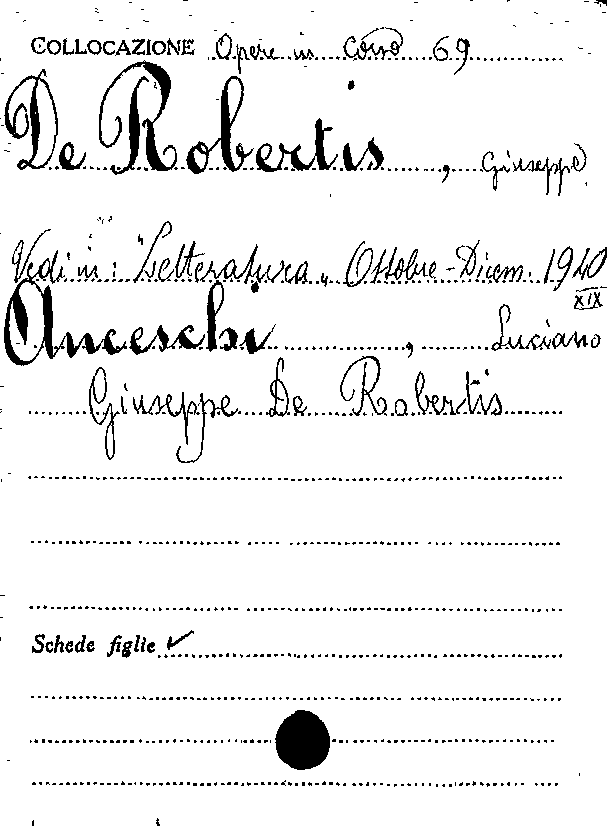 COLLOCAZIONE Opere in Corso 69
De Robertis, Giuseppe
Vedi in: "Letteratura„ Ottobre-Dicem. 1940
XIX
Anceschi, Luciano
Giuseppe De Robertis
Schede figlie ✓